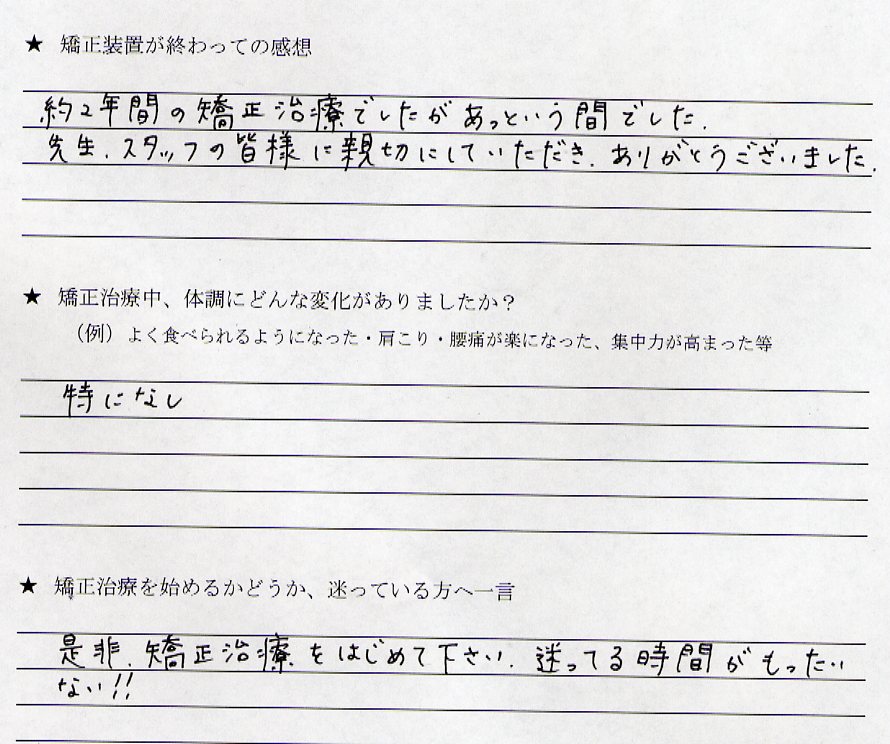 ★ 矯正装置が終わっての感想
約2年間の矯正治療でしたがあっという間でした.
先生.スタッフの皆様に親切にしていただき.ありがとうございました.
★ 矯正治療中、体調にどんな変化がありましたか？
（例）よく食べられるようになった・肩こり・腰痛が楽になった、集中力が高まった等
特になし
★ 矯正治療を始めるかどうか、迷っている方へ一言
是非.矯正治療をはじめて下さい.迷ってる時間がもったい
ない!!